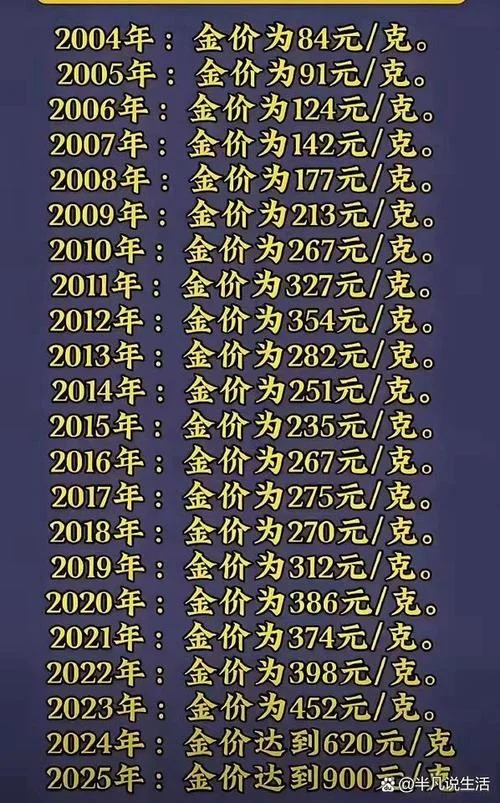 2004年：金价为84元/克。
2005年：金价为91元/克。
2006年：金价为124元/克。
2007年：金价为142元/克。
2008年：金价为177元/克。
2009年：金价为213元/克。
2010年：金价为267元/克。
2011年：金价为327元/克。
2012年：金价为354元/克。
2013年：金价为282元/克。
2014年：金价为251元/克。
2015年：金价为235元/克。
2016年：金价为267元/克。
2017年：金价为275元/克。
2018年：金价为270元/克。
2019年：金价为312元/克。
2020年：金价为386元/克。
2021年：金价为374元/克。
2022年：金价为398元/克。
2023年：金价为452元/克。
2024年：金价达到620元/克
2025年：金价达到900元/克
@半凡说生活